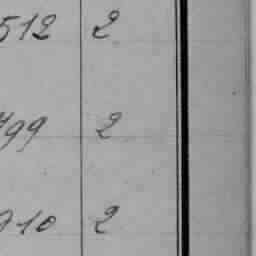 512 2
799 2
910 2